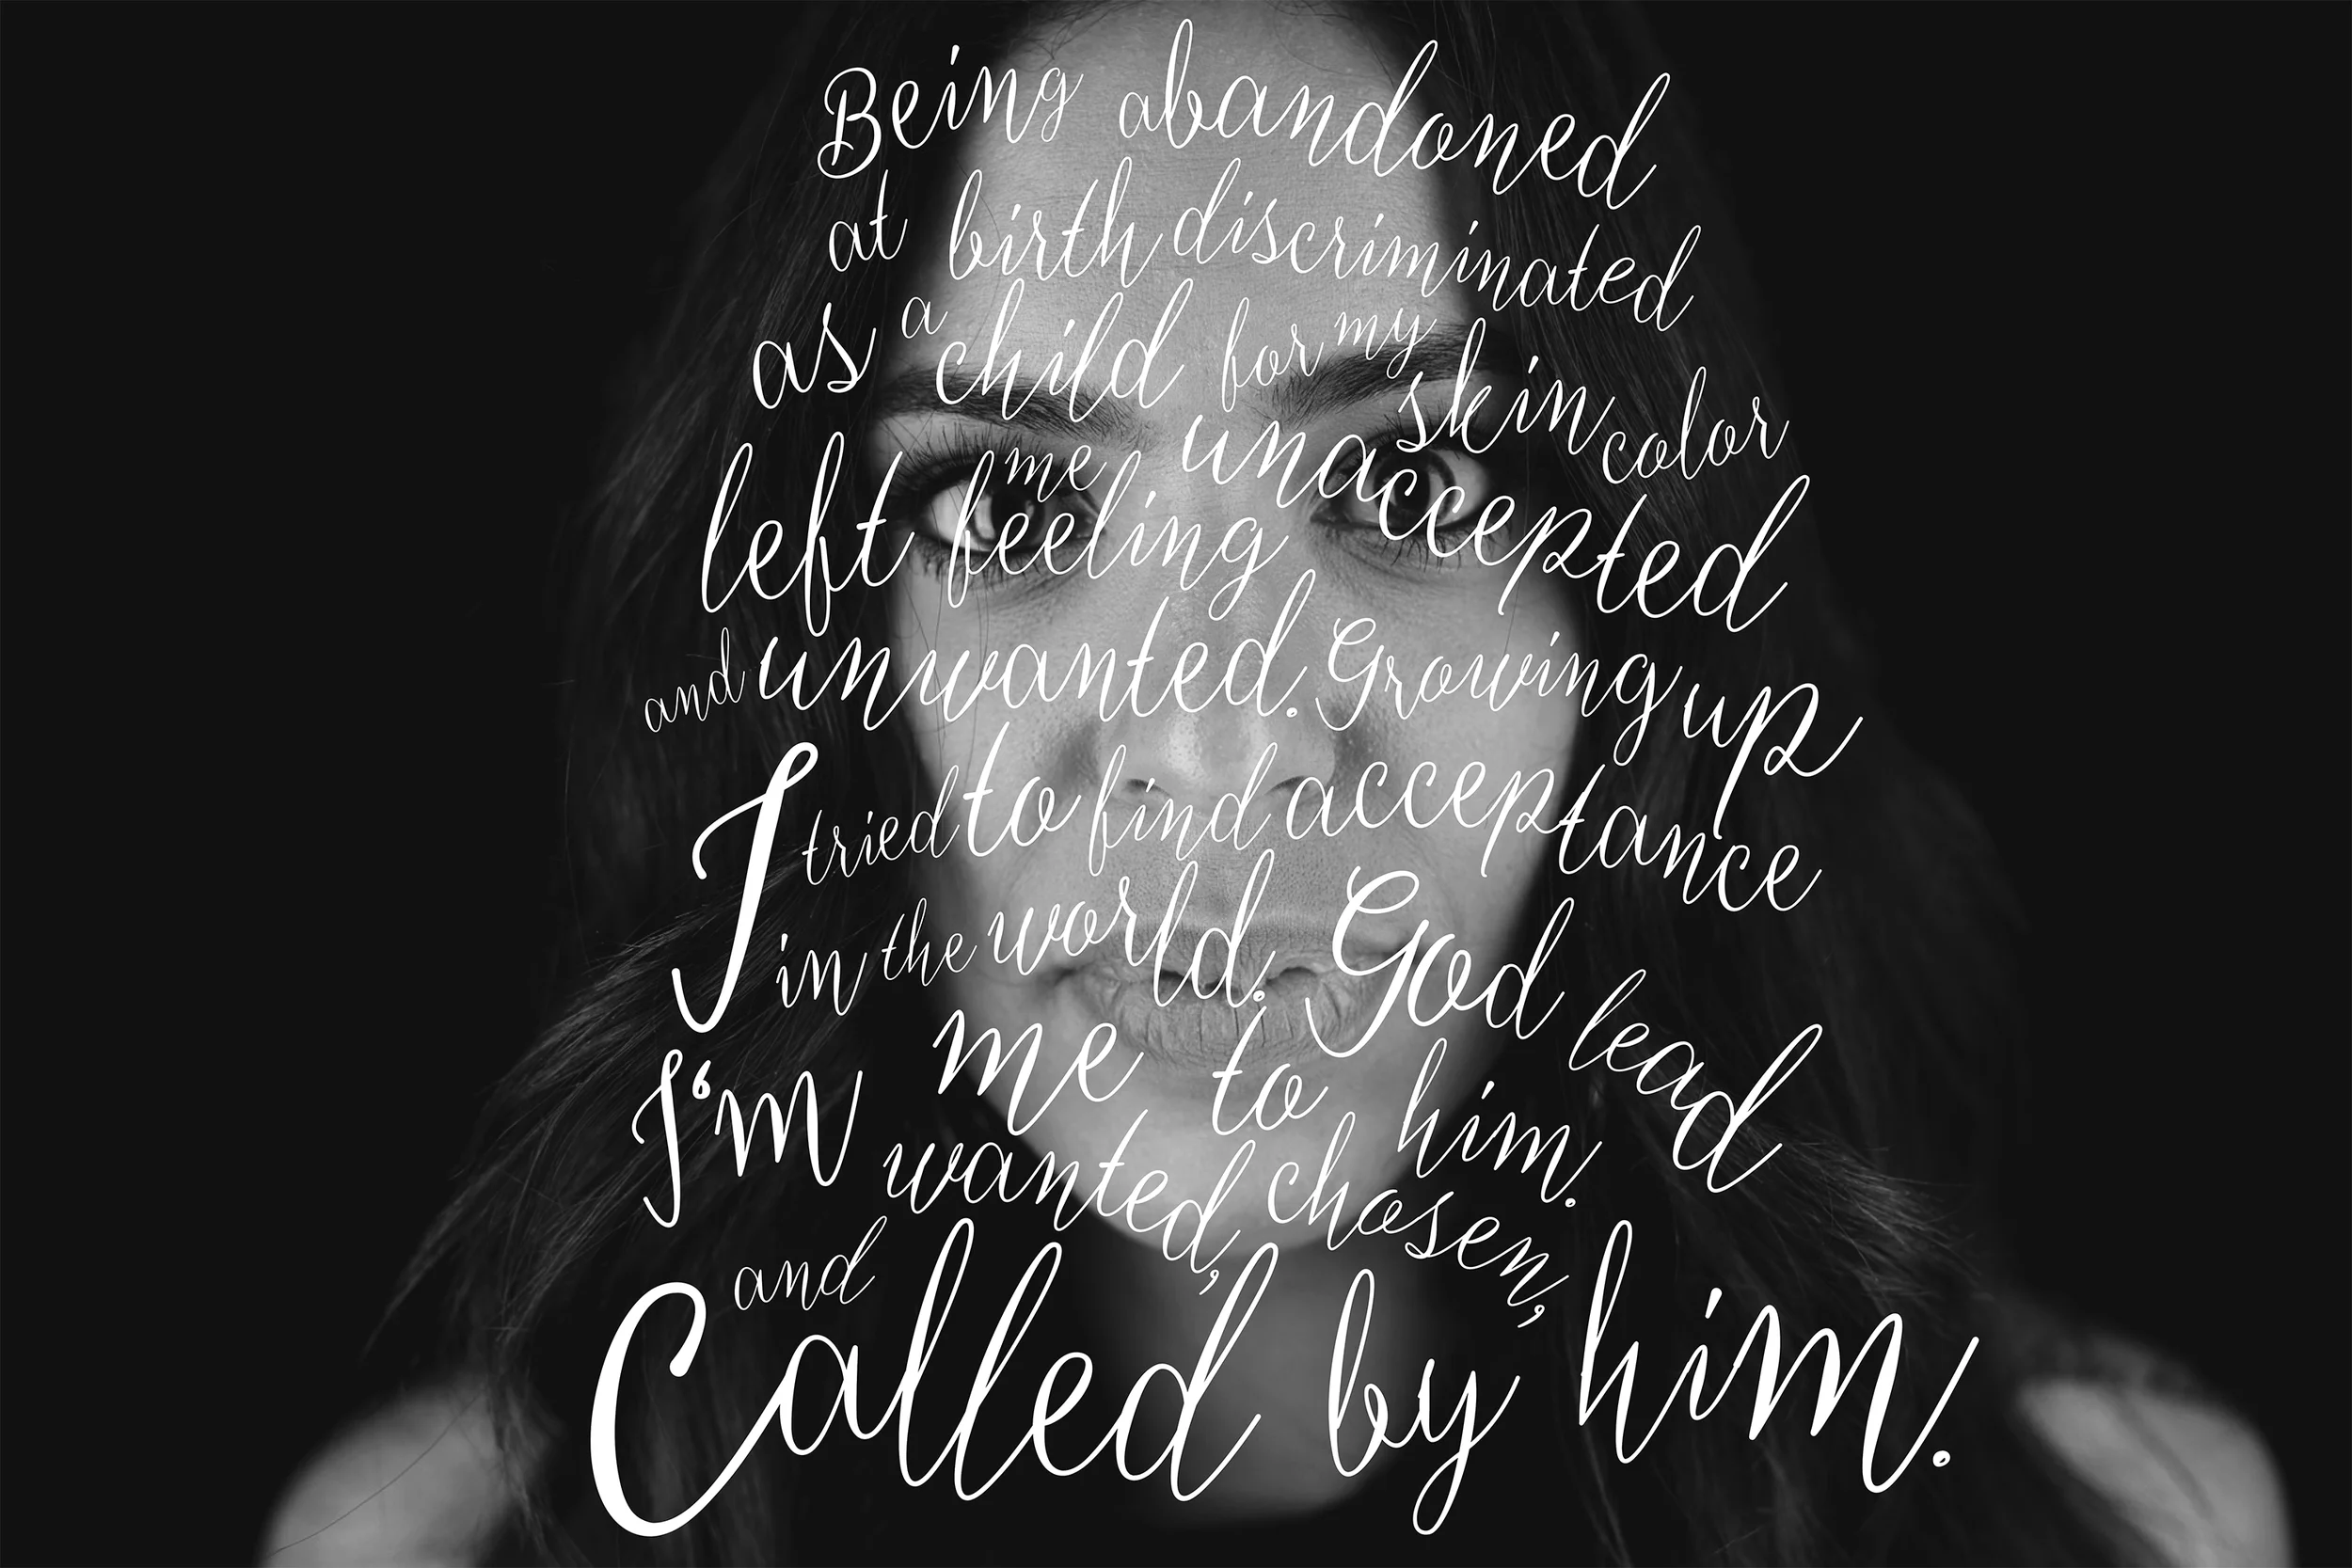 Being abandoned
at birth discriminated
as a child for my skin color
left me feeling unaccepted
and unwanted. Growing up
I tried to find acceptance
in the world. God lead
me to him.
I'm wanted, chosen,
and Called by him.